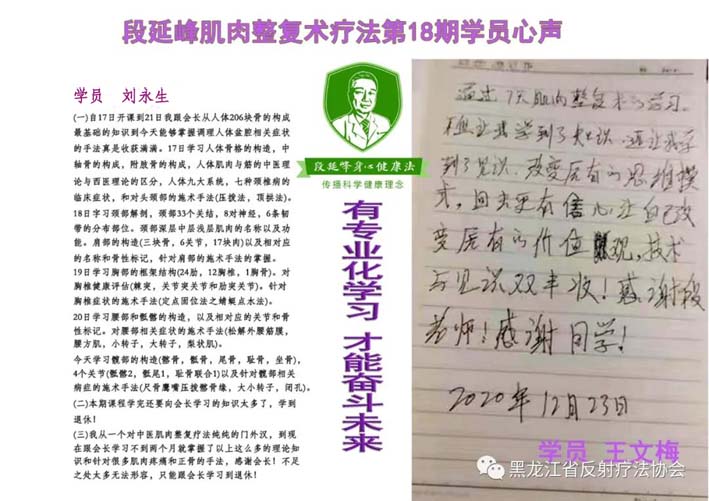 段延峰肌肉整复术疗法第18期学员心声
学员 刘永生
(一)自17日开课到21日我跟会长从人体206块骨的构成
最基础的知识到今天能够掌握调理人体盆腔相关症状
的手法真是收获满满。17日学习人体骨格的构造,中
轴骨的构成,附肢骨的构成,人体肌肉与筋的中医理
论与西医理论的区分,人体九大系统,七种颈椎病的
临床症状,和对头颈部的施术手法(压拨法,顶揉法)。
18日字习颈部解剖,颈部33个关结,8对神经,6条韧
带的分部部位。颈部深层中层浅层肌肉的名称以及功
能。肩部的构造(三块骨,6关节,17块肉)以及相对应
的名称和骨性标记,针对肩部的施术手法的掌握。
19日学习胸部的框架结构(24肋,12胸椎,1胸骨)。对
胸椎健康评估(棘突,关节突关节和肋突关节)。针对
胸椎症状的施术手法(定点固位法之蜻蜓点水法)。
20日学习腰部和骶髂的构造,以及相对应的关节和骨
性标记。对腰部相关症状的施术手法(松解外腰筋膜,
腰方肌,小转子,大转子,梨状肌)。
今天学习髋部的构造(髂骨,骶骨,尾骨,耻骨,坐骨),
4个关节(骶髂2,骶尾1,耻骨联合1)以及针对髋部相关
病症的施术手法(尺骨鹰嘴压拨髂骨缘,大小转子,闭孔)。
(二)本期课程学完还要向会长学习的知识太多了,学到
退休!
(三)我从一个对中医肌肉整复疗法纯纯的门外汉,到现
在跟会长学习不到两个月就掌握了以上这么多的理论知
识和针对很多肌肉疼痛和正骨的手法,感谢会长!不足
之处太多无法形容,只能跟会长学习到退休!
段延峰身心健康法
传播科学健康理念
有专业化学习 才能奋斗未来
通过7天肌肉整复术的学习。
不但让我学到了知识,还让我学
到了见识、改变原有的思维模
式,回去更有信心让自己改
变原有的价值观,技术
与见识双丰收!感谢段
老师!感谢同学!
2020年12月23日
学员 王文梅
黑龙江省反射疗法协会